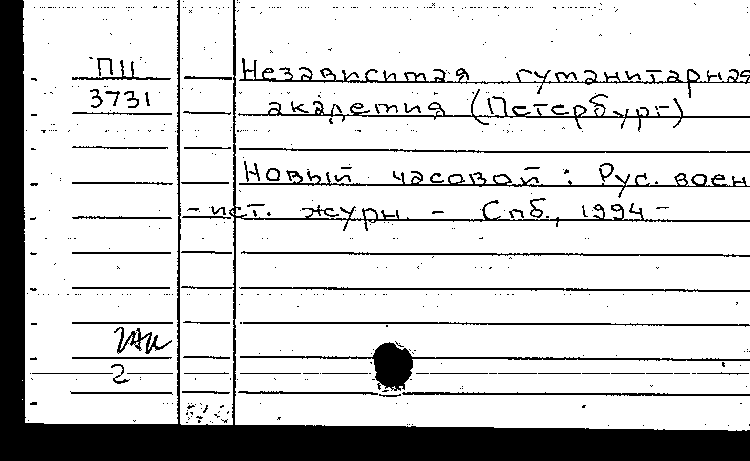 ПII
3731
Независимая гуманитарная
академия (Петербург)
Новый часовой : Рус. воен
- ист. журн. - Спб., 1994 -
2